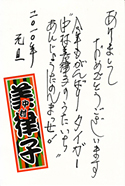 あけまして
おめでとうございます
今年もがんばりタイガー
中村美律子のうたいち
あんじょうたのしませ。
二〇一〇年
元旦
美律子